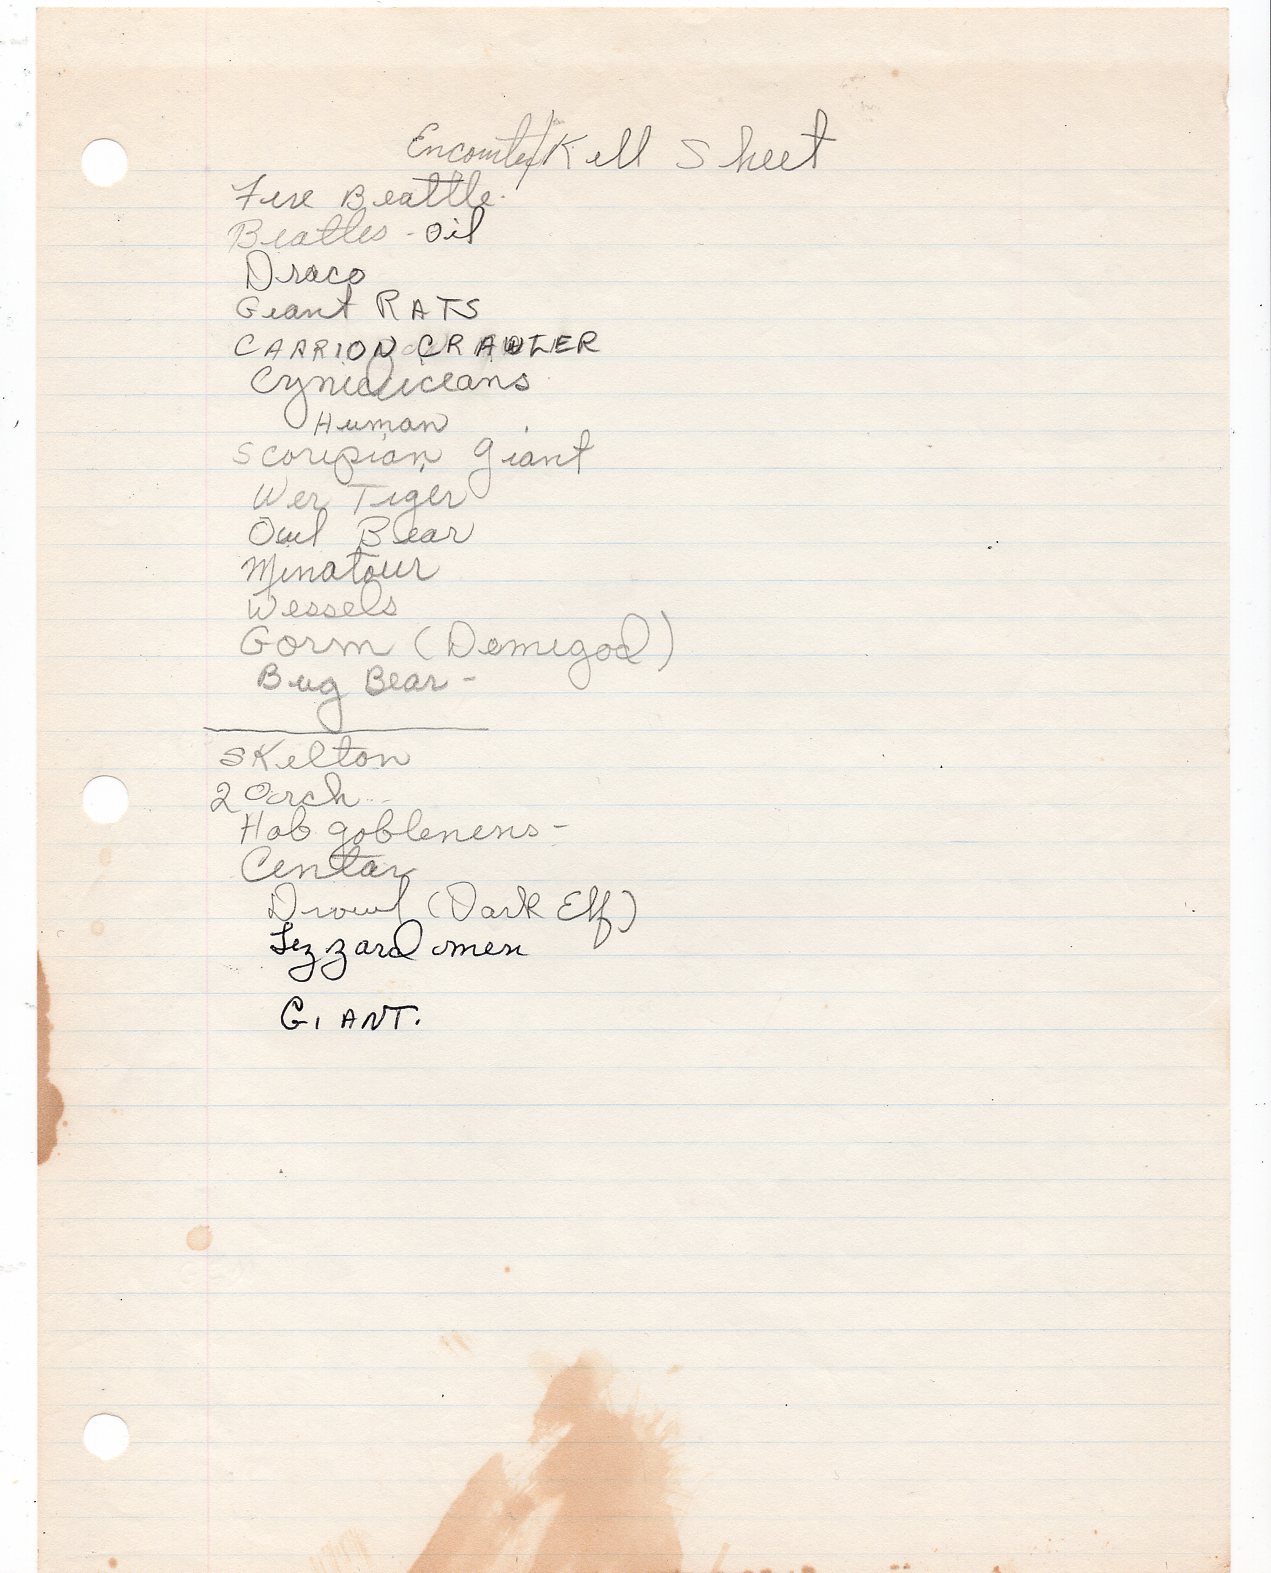 Encounter/Kill Sheet
Fire Beattle.
Beatles - oil
Draco
Giant RATS
CARRION CRAWLER
Cynidiceans
Human
Scorpian giant
Wer Tiger
Owl Bear
Minatour
Wessels
Gorm (Demigod)
Bug Bear -
Skelton
2 Orch
Hob goblenens -
Centar
Drowl (Dark Elf)
Lizzard men
GIANT.